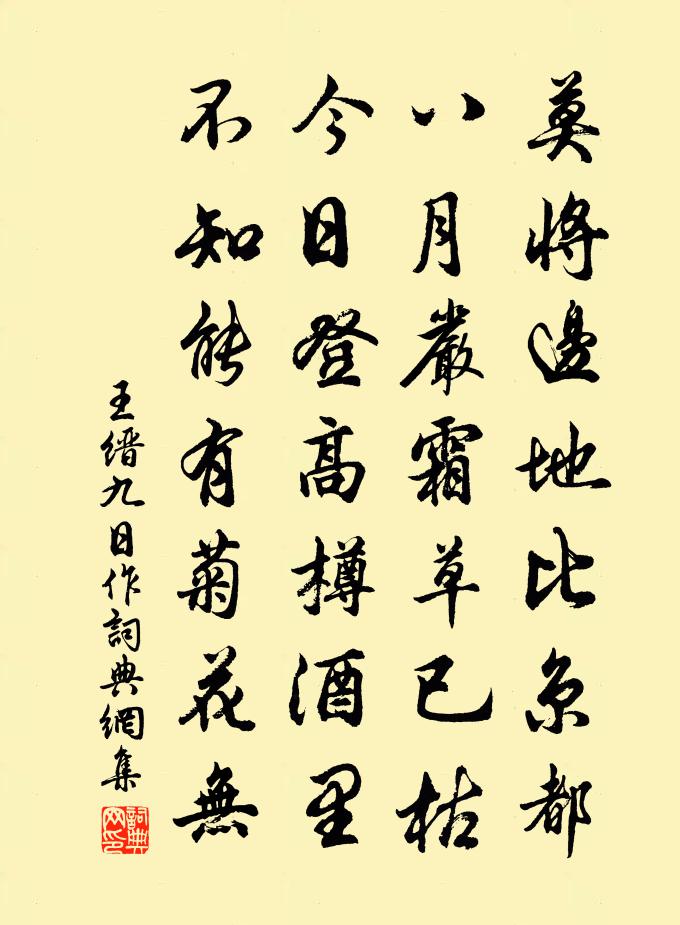 莫將邊地比京都
八月嚴霜草已枯
今日登高樽酒里
不知能有菊花無
王縉九日作詞典網集
詞典網印